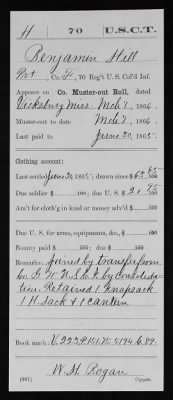 H 70 U.S.C.T.
Benjamin Hill
Pvt, Co. F, 70 Reg't U.S. Col'd Inf.
Appears on Co. Muster-out Roll, dated
Vicksburg Miss Mch 7, 1866.
Muster-out to date Mch 7, 1866.
Last paid to June 30, 1865.
Clothing account:
Last settled June 30, 1865; drawn since $ 62 85/100
Due soldier $ /100; due U.S. $ 21 95/100
Am't for cloth'g in kind or money adv'd $ /100
Due U.S. for arms, equipments, &c., $ /100
Bounty paid $ /100; due $ /100
Remarks: Joined by transfer from
Co. G U.S.C.I. by Consolida-
tion. Retained 1 Knapsack
1 H. Sack & 1 Canteen
Book mark:
W. H. Rogan
(361) Copyist.